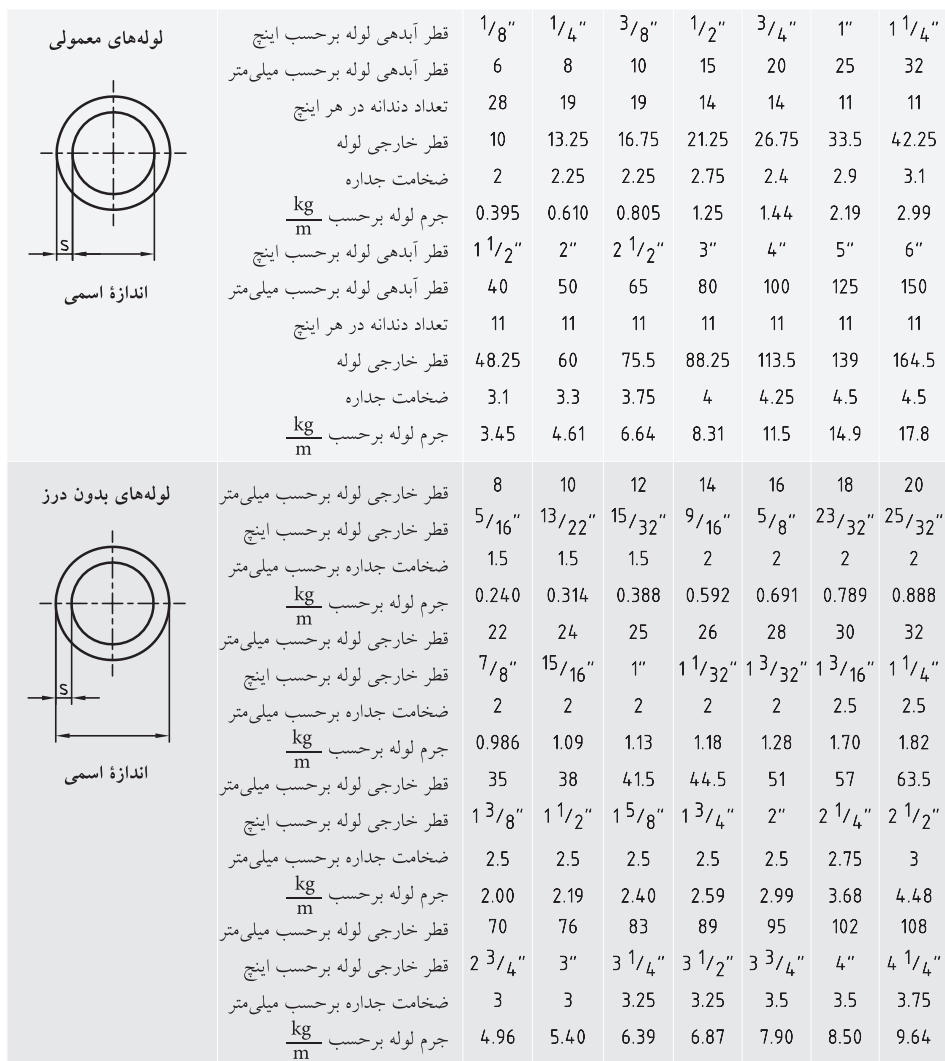 لوله‌های معمولی
s
اندازهٔ اسمی
قطر آبدهی لوله برحسب اینچ 1/8" 1/4" 3/8" 1/2" 3/4" 1" 1 1/4"
قطر آبدهی لوله برحسب میلی‌متر 6 8 10 15 20 25 32
تعداد دندانه در هر اینچ 28 19 19 14 14 11 11
قطر خارجی لوله 10 13.25 16.75 21.25 26.75 33.5 42.25
ضخامت جداره 2 2.25 2.25 2.75 2.4 2.9 3.1
جرم لوله برحسب kg/m 0.395 0.610 0.805 1.25 1.44 2.19 2.99
قطر آبدهی لوله برحسب اینچ 1 1/2" 2" 2 1/2" 3" 4" 5" 6"
قطر آبدهی لوله برحسب میلی‌متر 40 50 65 80 100 125 150
تعداد دندانه در هر اینچ 11 11 11 11 11 11 11
قطر خارجی لوله 48.25 60 75.5 88.25 113.5 139 164.5
ضخامت جداره 3.1 3.3 3.75 4 4.25 4.5 4.5
جرم لوله برحسب kg/m 3.45 4.61 6.64 8.31 11.5 14.9 17.8
لوله‌های بدون درز
s
اندازهٔ اسمی
قطر خارجی لوله برحسب میلی‌متر 8 10 12 14 16 18 20
قطر خارجی لوله برحسب اینچ 5/16" 13/22" 15/32" 9/16" 5/8" 23/32" 25/32"
ضخامت جداره برحسب میلی‌متر 1.5 1.5 1.5 2 2 2 2
جرم لوله برحسب kg/m 0.240 0.314 0.388 0.592 0.691 0.789 0.888
قطر خارجی لوله برحسب میلی‌متر 22 24 25 26 28 30 32
قطر خارجی لوله برحسب اینچ 7/8" 15/16" 1" 1 1/32" 1 3/32" 1 3/16" 1 1/4"
ضخامت جداره برحسب میلی‌متر 2 2 2 2 2 2.5 2.5
جرم لوله برحسب kg/m 0.986 1.09 1.13 1.18 1.28 1.70 1.82
قطر خارجی لوله برحسب میلی‌متر 35 38 41.5 44.5 51 57 63.5
قطر خارجی لوله برحسب اینچ 1 3/8" 1 1/2" 1 5/8" 1 3/4" 2" 2 1/4" 2 1/2"
ضخامت جداره برحسب میلی‌متر 2.5 2.5 2.5 2.5 2.5 2.75 3
جرم لوله برحسب kg/m 2.00 2.19 2.40 2.59 2.99 3.68 4.48
قطر خارجی لوله برحسب میلی‌متر 70 76 83 89 95 102 108
قطر خارجی لوله برحسب اینچ 2 3/4" 3" 3 1/4" 3 1/2" 3 3/4" 4" 4 1/4"
ضخامت جداره برحسب میلی‌متر 3 3 3.25 3.25 3.5 3.5 3.75
جرم لوله برحسب kg/m 4.96 5.40 6.39 6.87 7.90 8.50 9.64